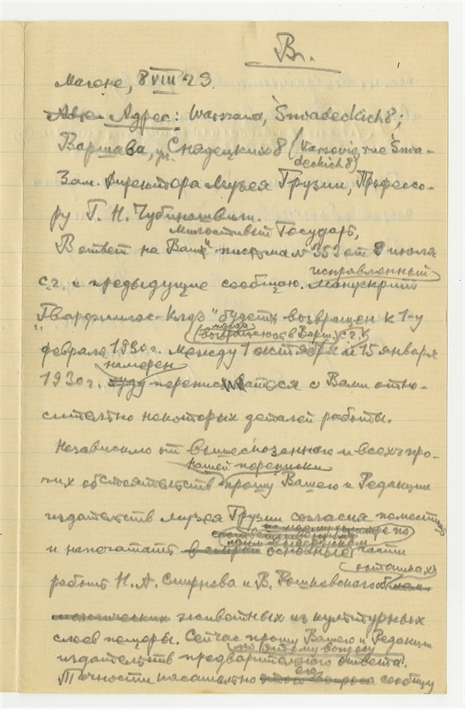 Br.
8 VIII 29.
Адрес: Warszawa, Śniadeckich 8;
Варшава, ул. Снядецких 8 (Varsovie, rue Śnia-
deckich 8)
Зам. Директора Музея Грузии, Профессо-
ру Г. Н. Чубинашвили.
Милостивый Государь,
В ответ на Ваше письмо № 353 от 8 июля
исправленный
с.г. и предыдущие сообщаю. Манускрипт
"Гварджилас-Клдэ" будет возвращен к 1-у
февраля 1930 г. Между 1 октября и 15 января
намерен
1930 г. буду переписываться с Вами отно-
сительно некоторых деталей работы.
Независимо от вышесказанного и всех про-
нашей переписки
чих обстоятельств прошу Вашего и Редакции
издательств музея Грузии согласия поместить
и напечатать основные части
работ Н. А. Смирнова и В. Рошковского
животных из культурных
слоев пещеры. Сейчас прошу Вашего и Редакции
по этому вопросу
издательств предварительного ответа.
его
Точности касательно этого вопроса сообщу